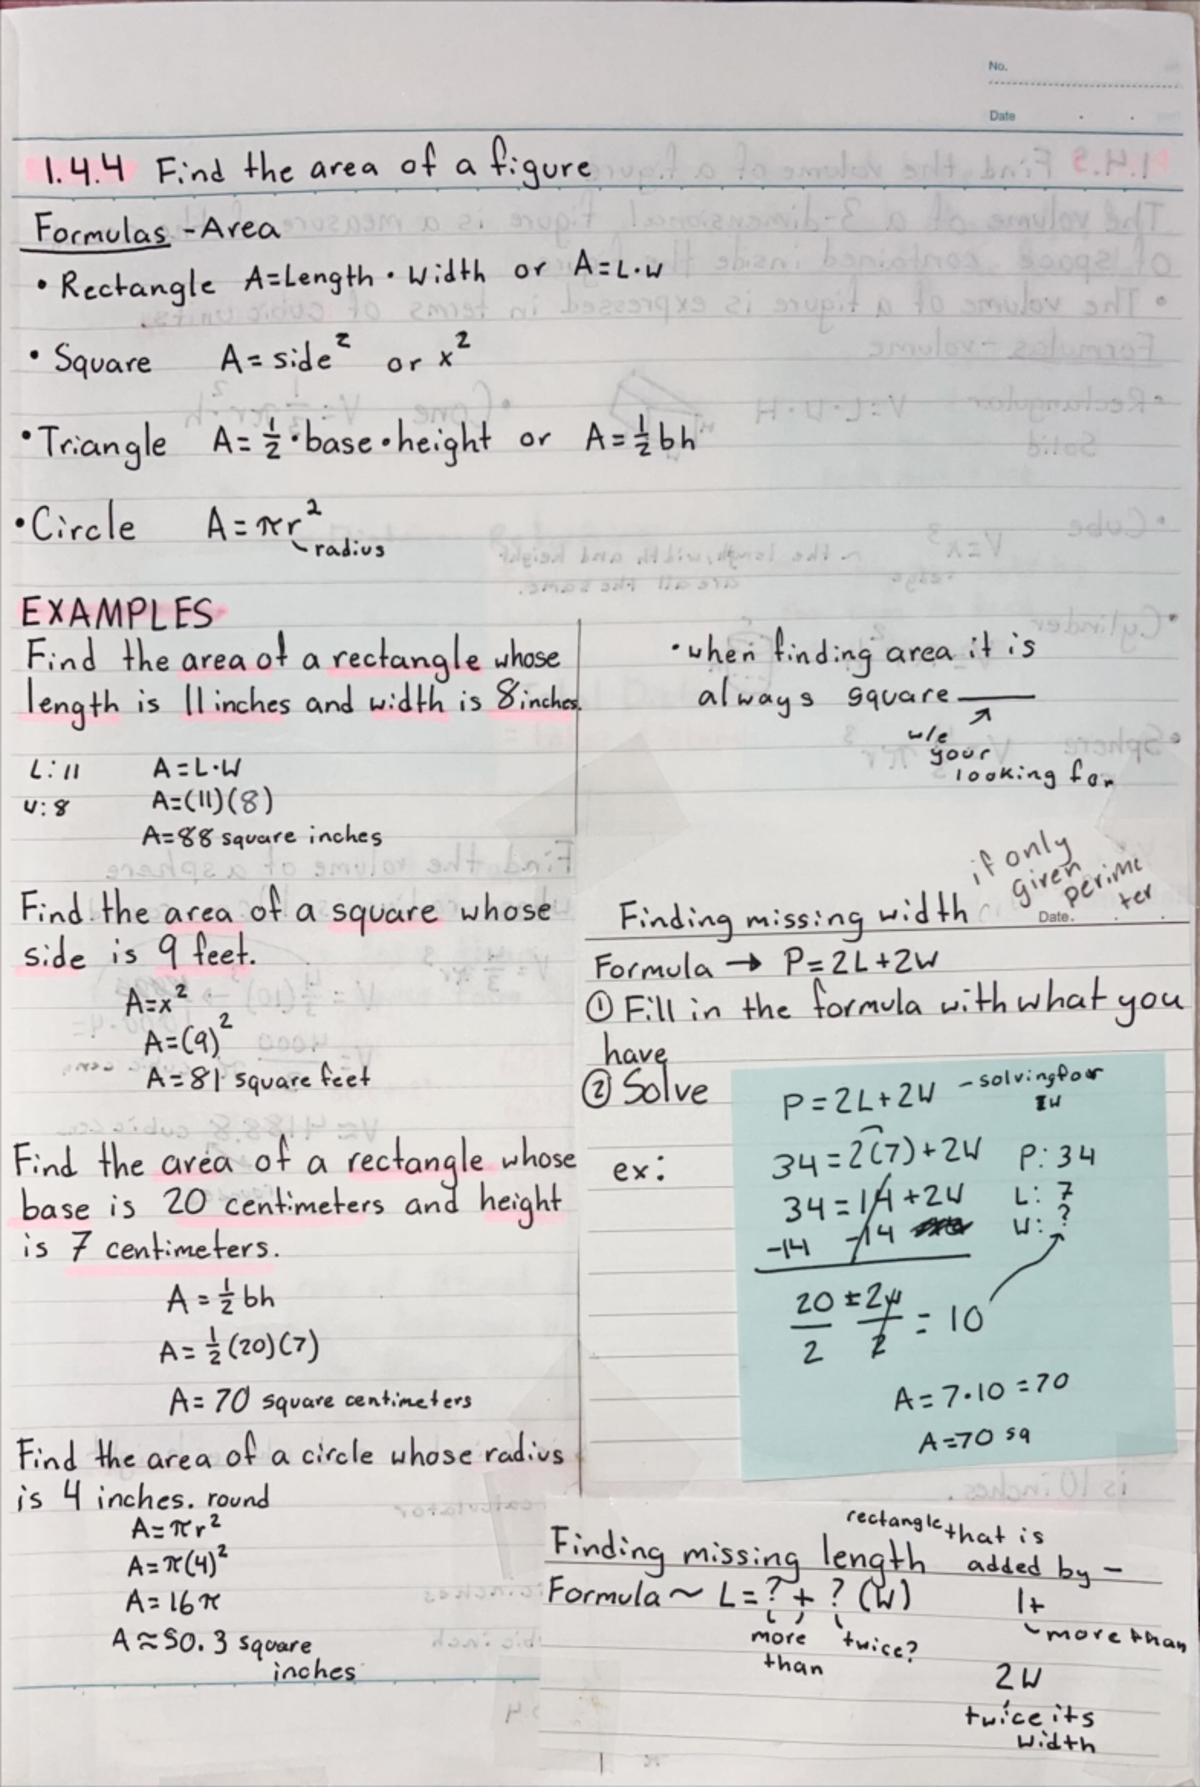 No.
Date
1.4.4 Find the area of a figure
Formulas - Area
• Rectangle A=Length • Width or A=L•W
• Square A=side² or x²
• Triangle A=½•base•height or A=½bh
• Circle A=πr²
radius
EXAMPLES
Find the area of a rectangle whose
length is 11 inches and width is 8 inches.
L:11 A=L•W
W:8 A=(11)(8)
A=88 square inches
• when finding area it is
always square ___
w/e
your
looking for
Find the area of a square whose
side is 9 feet.
A=x²
A=(9)²
A=81 square feet
Find the area of a rectangle whose
base is 20 centimeters and height
is 7 centimeters.
A=½bh
A=½(20)(7)
A=70 square centimeters
Find the area of a circle whose radius
is 4 inches. round
A=πr²
A=π(4)²
A=16π
A≈50.3 square
inches
if only
given
perime
ter
Finding missing width
Date.
Formula → P=2L+2W
① Fill in the formula with what you
have
② Solve
ex:
P=2L+2W - solving for
W
34=2(7)+2W P:34
34=14+2W L:7
-14 -14 W:?
20/2 = 2W/2 = 10
A=7•10=70
A=70 sq
Finding missing length rectangle that is
added by -
Formula ~ L=?+?(W) 1+
more than twice? more than
2W
twice its
width